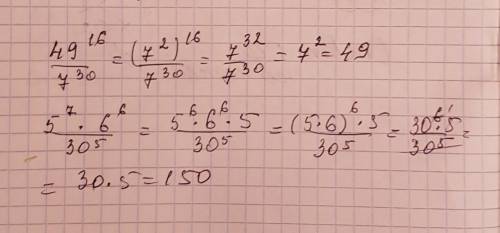 49^16/7^30 = (7^2)^16/7^30 = 7^32/7^30 = 7^2 = 49
5^7 · 6^6/30^5 = 5^6 · 6^6 · 5/30^5 = (5·6)^6 · 5/30^5 = 30^6 · 5/30^5 =
= 30 · 5 = 150